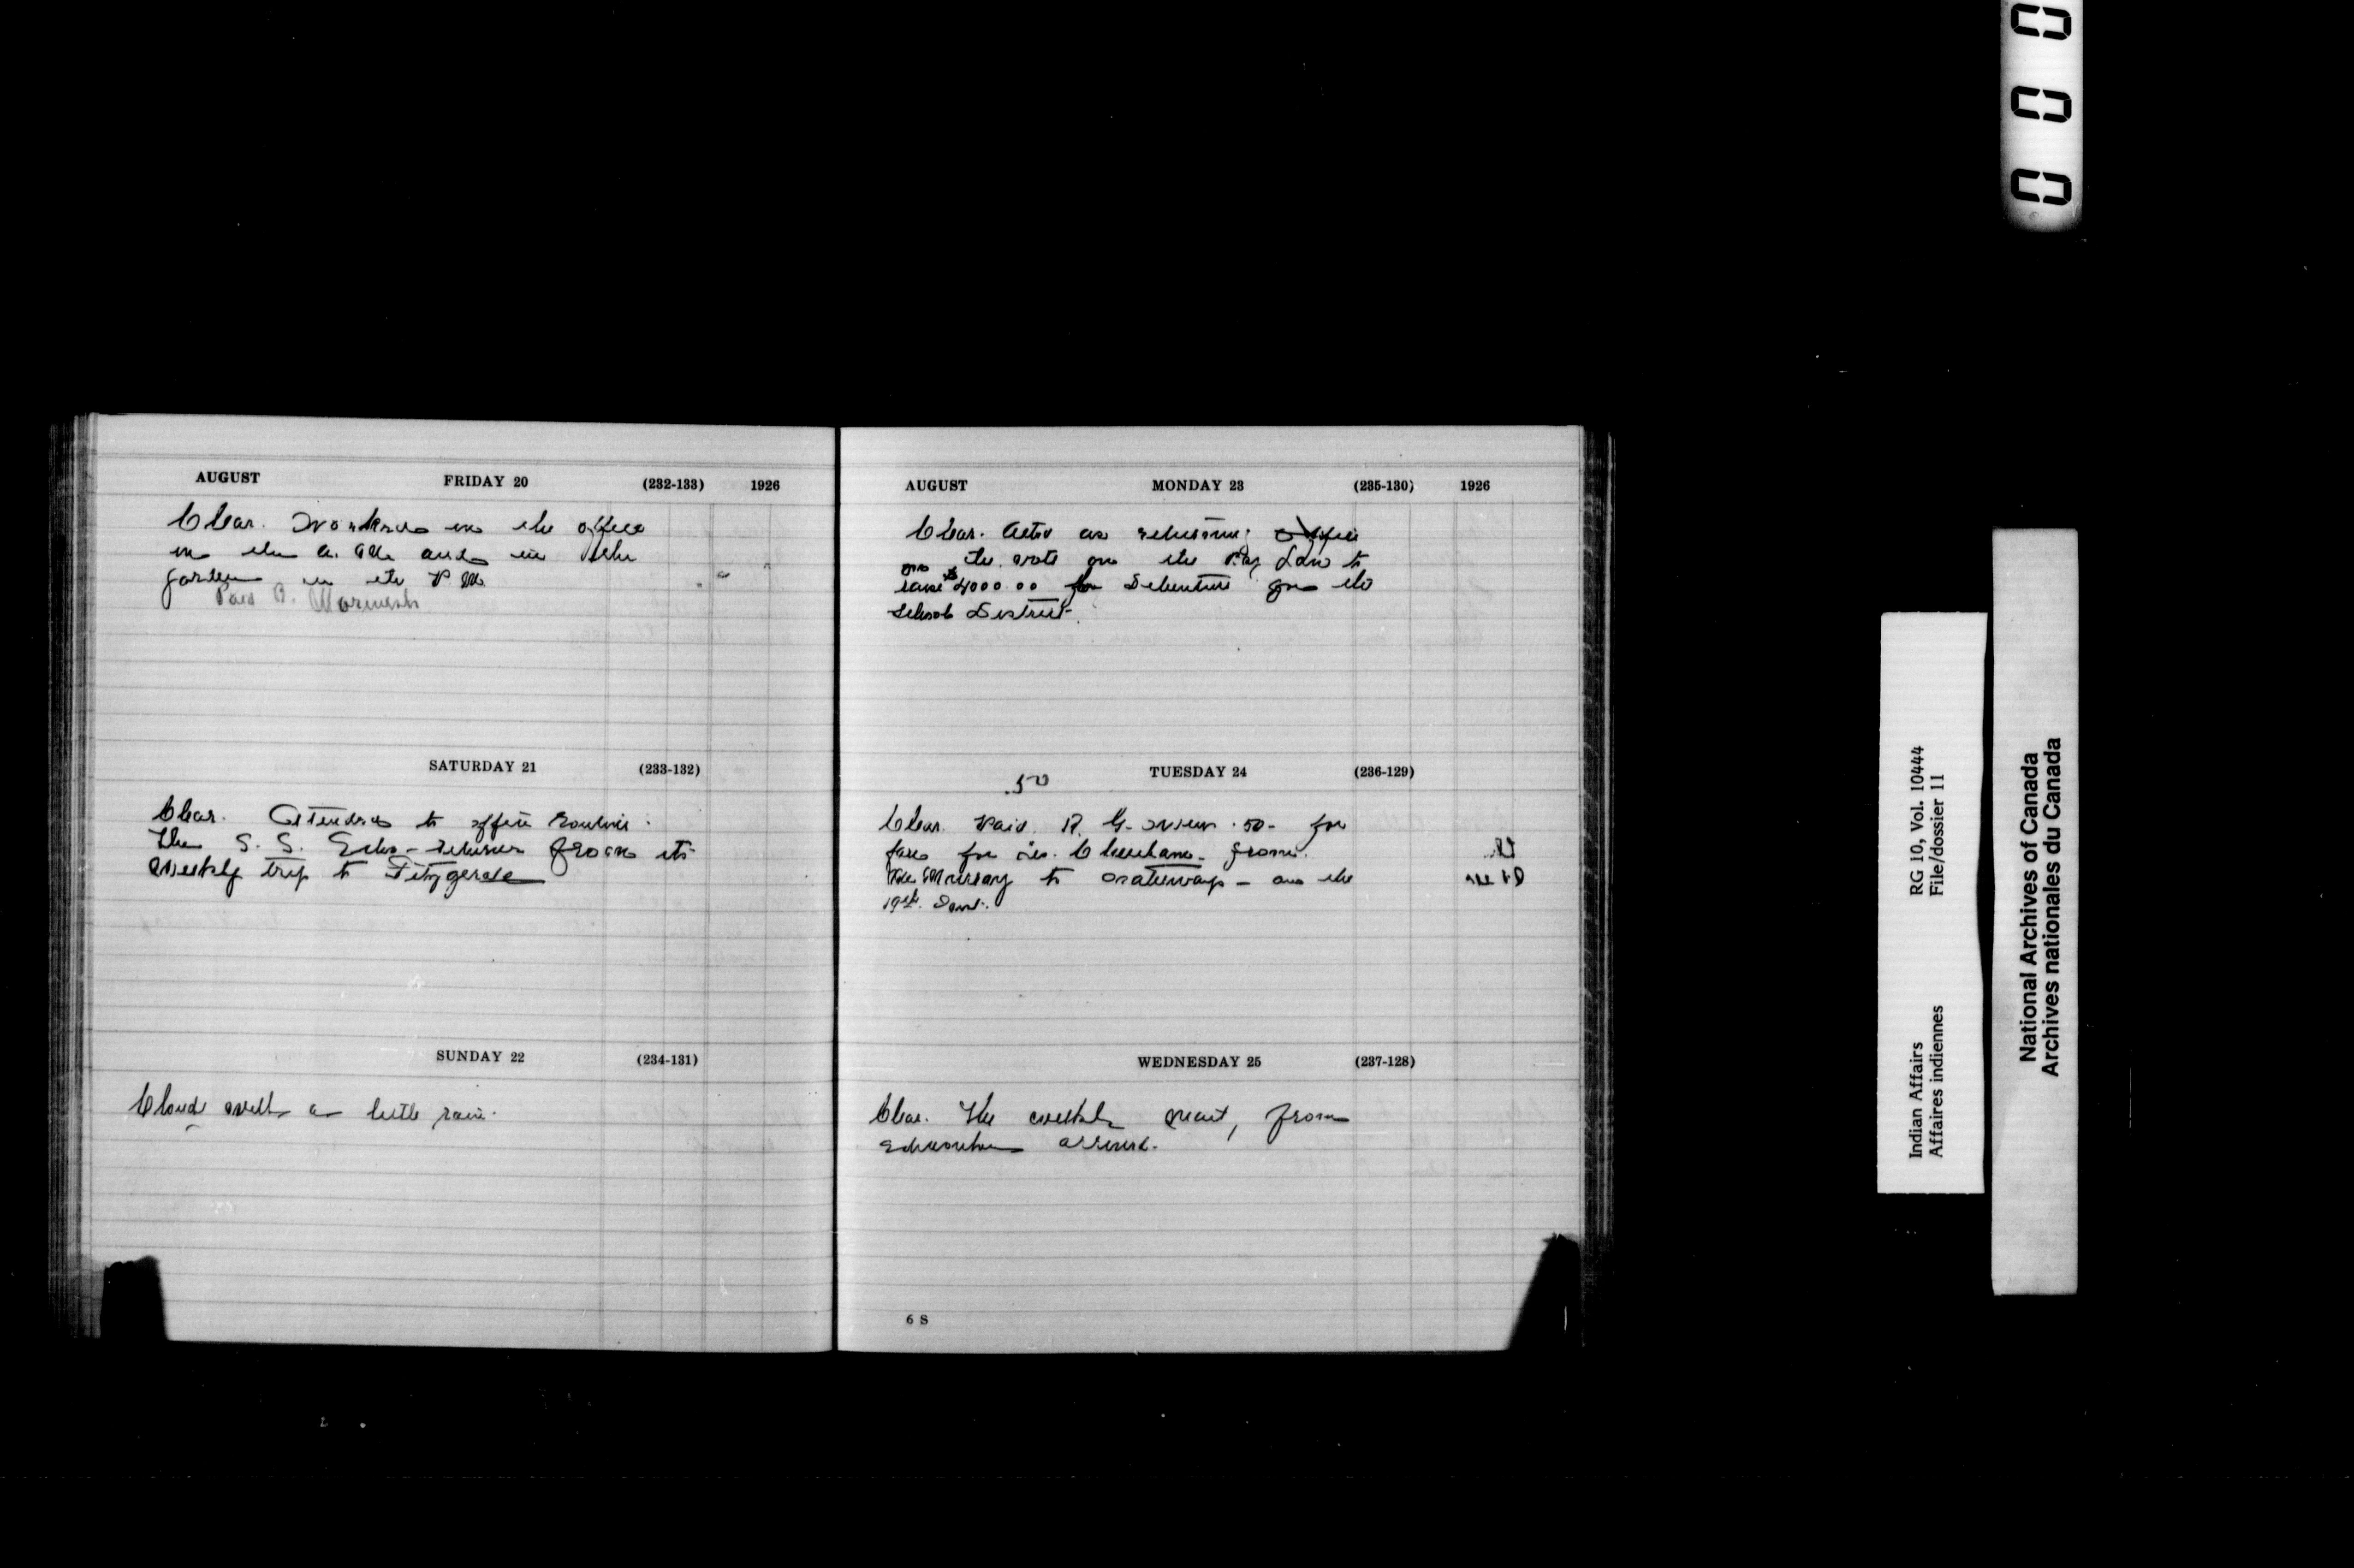 AUGUST FRIDAY 20 (232-133) 1926
Clear. Worked in the office
in the A. M. and in the
garden in the P M.
Paid B.
SATURDAY 21 (233-132)
Clear. Attended to office routine.
The S. S. Echo returned from its
weekly trip to Fitzgerald
SUNDAY 22 (234-131)
Cloudy with a little rain.
AUGUST MONDAY 23 (235-130) 1926
Clear. Acted as returning officer
on the vote on the By Law to
raise $4000.00 for Debenture for the
School District.
.50
TUESDAY 24 (236-129)
Clear. Paid R. G. .50 for
fare for from
Mc Murray to Waterways – on the
19th Inst.
WEDNESDAY 25 (237-128)
Clear. The weekly mail, from
Edmonton arrived.
6 S
0 0 0
Indian Affairs RG 10, Vol. 10444
Affaires indiennes File/dossier 11
National Archives of Canada
Archives nationales du Canada